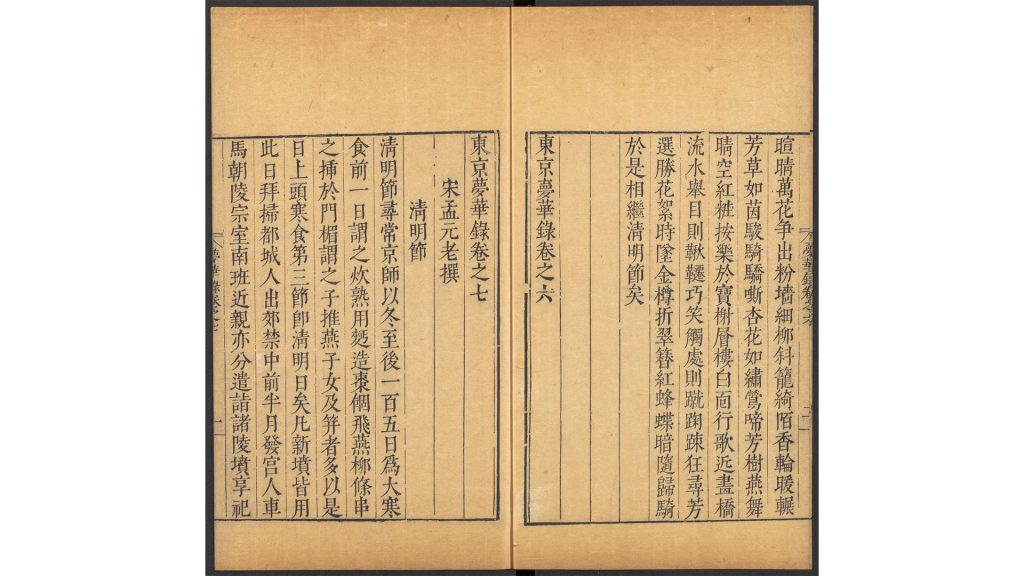 暄晴萬花争出粉墻細栁斜籠綺陌香輪暖輾
芳草如茵駿騎驕嘶杏花如繡鶯啼芳樹燕舞
晴空紅粧按樂於寶榭層樓白面行歌近畫橋
流水舉目則鞦韆巧笑觸處則蹴踘踈狂尋芳
選勝花絮時墜金樽折翠簪紅蜂蝶暗隨歸騎
於是相繼清明節矣
東京夢華錄卷之六
東京夢華錄卷之七
宋孟元老撰
清明節
清明節尋常京師以冬至後一百五日爲大寒
食前一日謂之炊熟用麫造棗䭅飛燕柳條串
之揷於門楣謂之子推燕子女及笄者多以是
日上頭寒食第三節即清明日矣凡新墳皆用
此日拜掃都城人出郊禁中前半月發宫人車
馬朝陵宗室南班近親亦分遣詣諸陵墳享祀
一